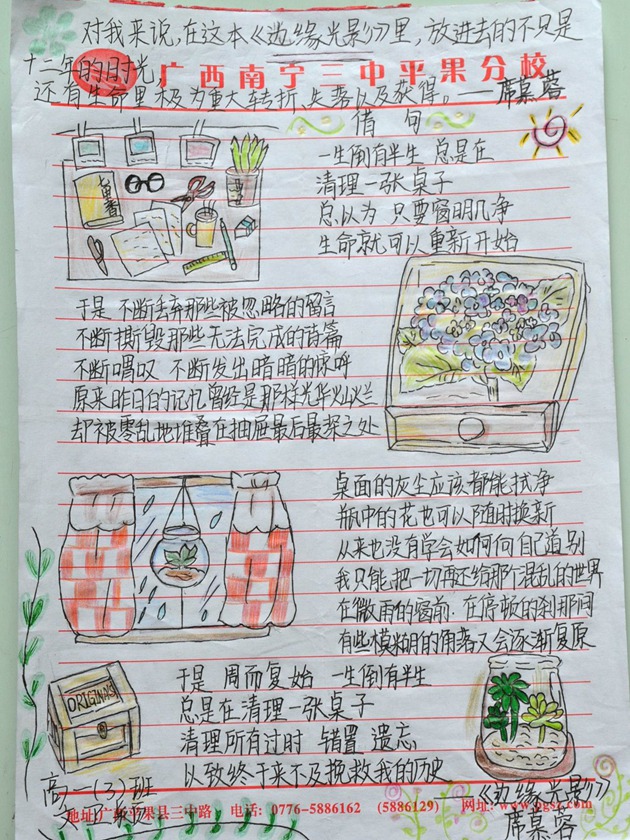 对我来说,在这本《边缘光影》里,放进去的不只是
十二年的时光
广西南宁三中平果分校
还有生命里极为重大转折、失落以及获得。——席慕蓉
借句
一生倒有半生 总是在
清理一张桌子
总以为 只要窗明几净
生命就可以重新开始
于是 不断丢弃那些被忽略的留言
不断撕毁那些无法完成的诗篇
不断喟叹 不断发出暗暗的惊呼
原来昨日的记忆曾经是那样光华灿烂
却被零乱地堆叠在抽屉最后最深之处
桌面的灰尘应该都能拭净
瓶中的花也可以随时换新
从来也没有学会如何向自己道别
我只能把一切再还给那个混乱的世界
在微雨的窗前 在停顿的刹那间
有些模糊的角落又会逐渐复原
于是 周而复始 一生倒有半生
ORIGINAL
总是在清理一张桌子
清理所有过时 错置 遗忘
以致终于来不及挽救我的历史
高一(3)班
《边缘光影》
地址:广西平果县三中路 电话:0776-5886162 (5886129) 网址:
席慕蓉